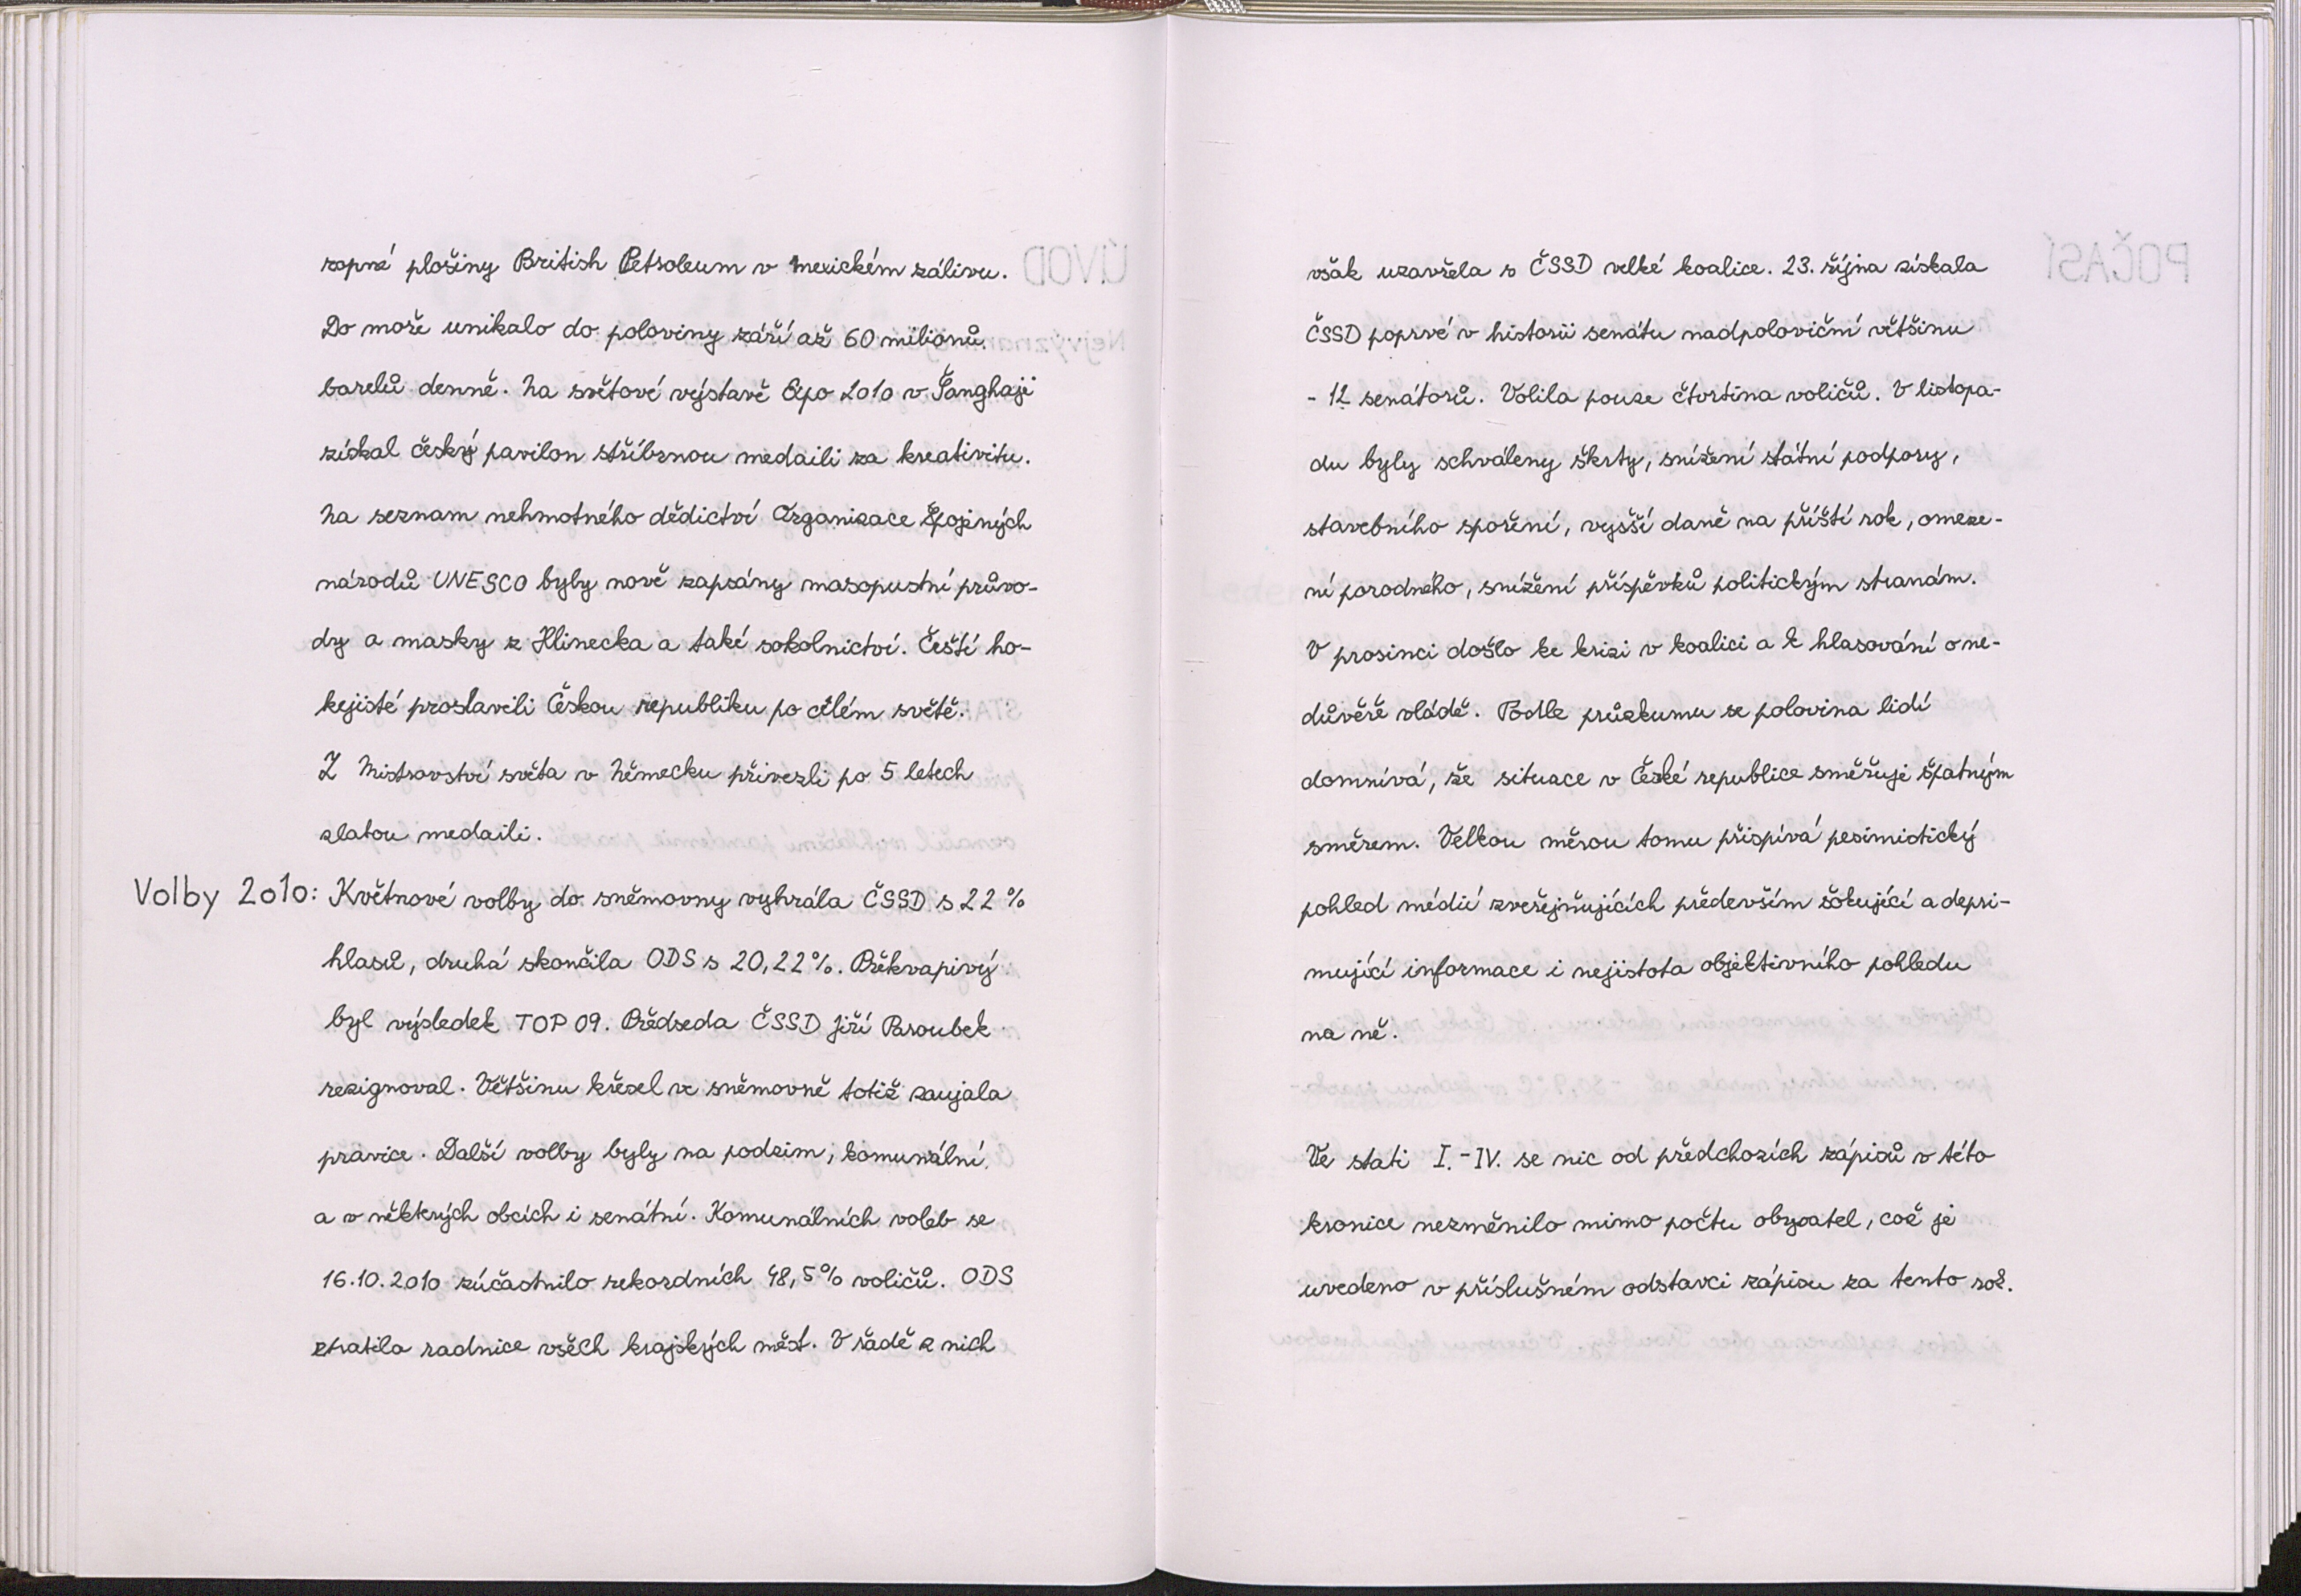 ropné plošiny British Petroleum v Mexickém zálivu.
Do moře unikalo do poloviny září až 60 milionů
barelů denně. Na světové výstavě Expo 2010 v Šanghaji
získal český pavilon stříbrnou medaili za kreativitu.
Na seznam nehmotného dědictví Organizace Spojených
národů UNESCO byly nově zapsány masopustní průvo-
dy a masky z Hlinecka a také sokolnictví. Čeští ho-
kejisté proslavili Českou republiku po celém světě.
Z Mistrovství světa v Německu přivezli po 5 letech
zlatou medaili.
Volby 2010: Květnové volby do sněmovny vyhrála ČSSD s 22 %
hlasů, druhá skončila ODS s 20,22 %. Překvapivý
byl výsledek TOP 09. Předseda ČSSD Jiří Paroubek
rezignoval. Většinu křesel ve sněmovně totiž zaujala
pravice. Další volby byly na podzim, komunální
a v některých obcích i senátní. Komunálních voleb se
16.10.2010 zúčastnilo rekordních 48,5 % voličů. ODS
ztratila radnice všech krajských měst. V řadě z nich
však uzavřela s ČSSD velké koalice. 23. října získala
ČSSD poprvé v historii senátu nadpoloviční většinu
- 12 senátorů. Volila pouze čtvrtina voličů. V listopa-
du byly schváleny škrty, snížení státní podpory,
stavebního spoření, vyšší daně na příští rok, omeze-
ní porodného, snížení příspěvků politickým stranám.
V prosinci došlo ke krizi v koalici a k hlasování o ne-
důvěře vládě. Podle průzkumu se polovina lidí
domnívá, že situace v České republice směřuje špatným
směrem. Velkou měrou tomu přispívá pesimistický
pohled médií zveřejňujících především šokující a depri-
mující informace i nejistota objektivního pohledu
na ně.
Ve stati I.-IV. se nic od předchozích zápisů v této
kronice nezměnilo mimo počtu obyvatel, což je
uvedeno v příslušném odstavci zápisu za tento rok.